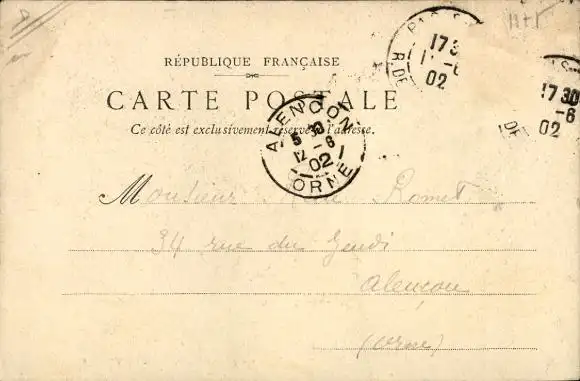 RÉPUBLIQUE FRANÇAISE
CARTE POSTALE
Ce côté est exclusivement réservé à l'adresse.
ALENÇON
5 30
12 -6
02
ORNE
17 30
-6
02
17 30
-6
02
Monsieur Romet
34 rue du
Alençon
(Orne)